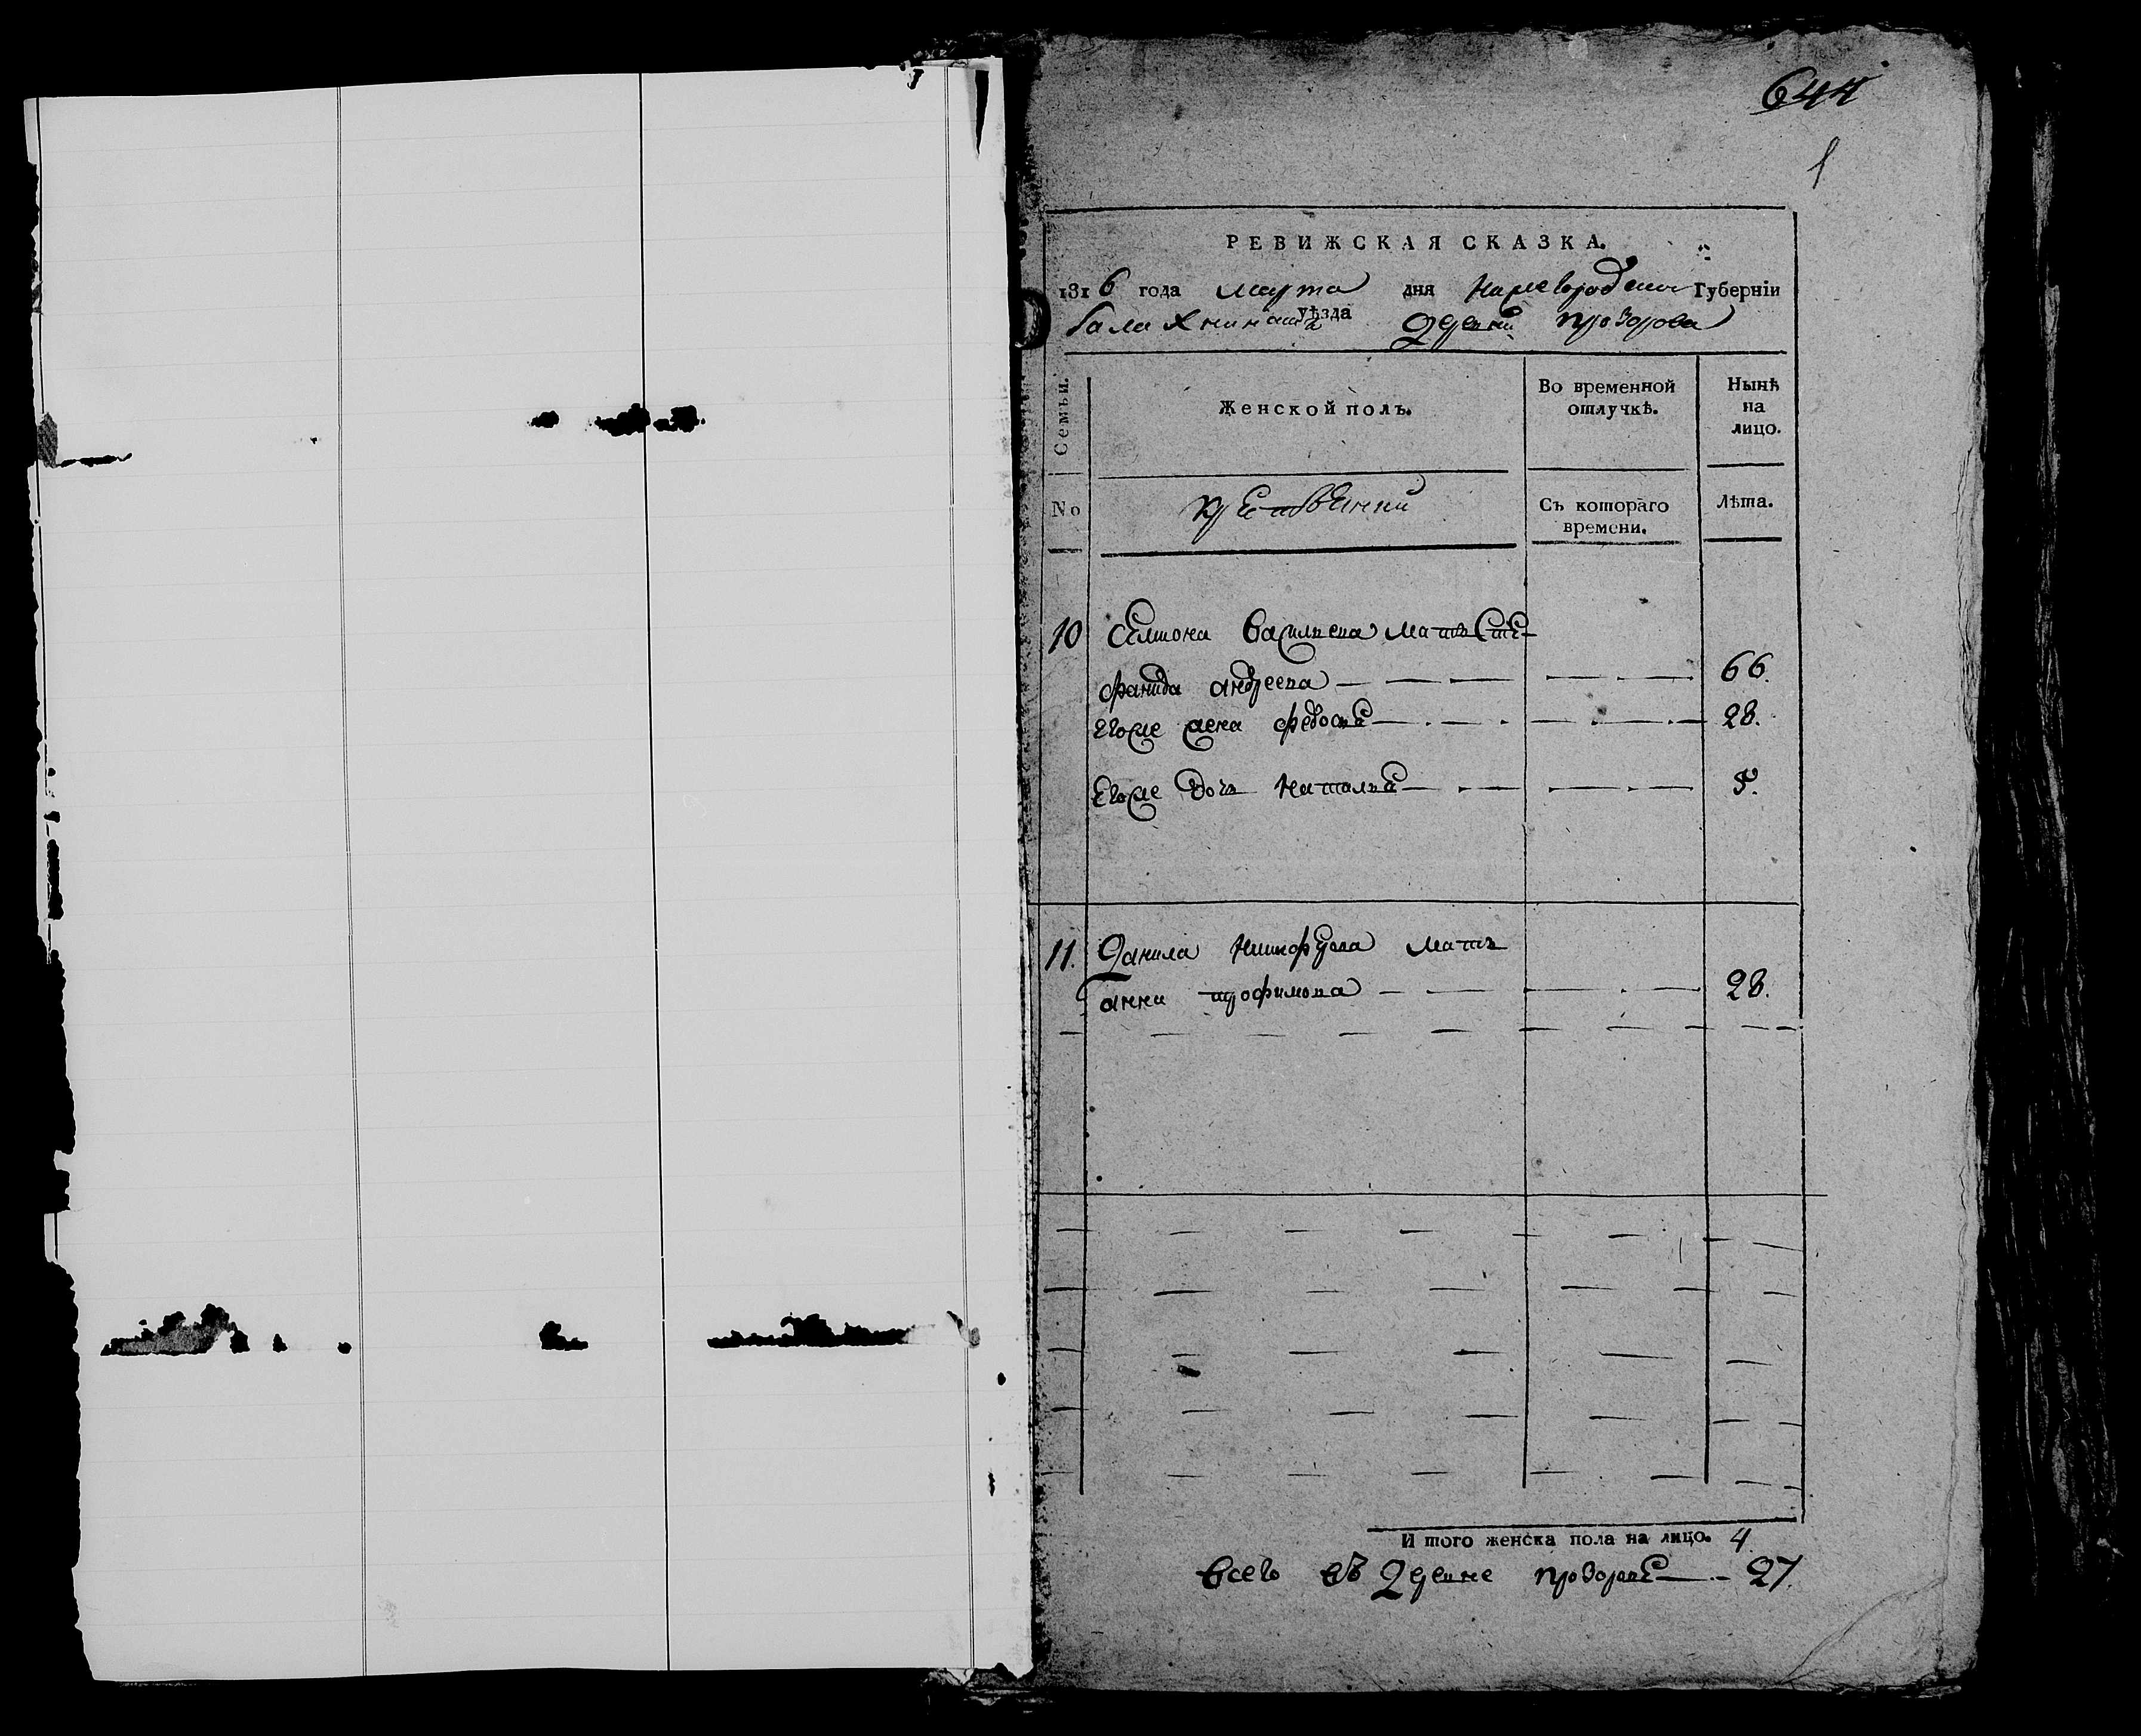 644
1
РЕВИЖСКАЯ СКАЗКА.
1816 года марта дня нижегородской Губернїи
балахнинска уѣзда дерѣвни прозорова
Семьи.
Женской полъ.
Во временной отлучкѣ.
Нынѣ на лицо.
No
крестьянки
Съ котораго времени.
Лѣта.
10 Семиона Василиева мать Сте-
фанида андреева 66.
Егоже жена федосья 28.
Егоже дочь наталья 5.
11. Данила никифорова мать
анна трофимова 28.
И того женска пола на лицо. 4
всего въ деревне прозорове 27.